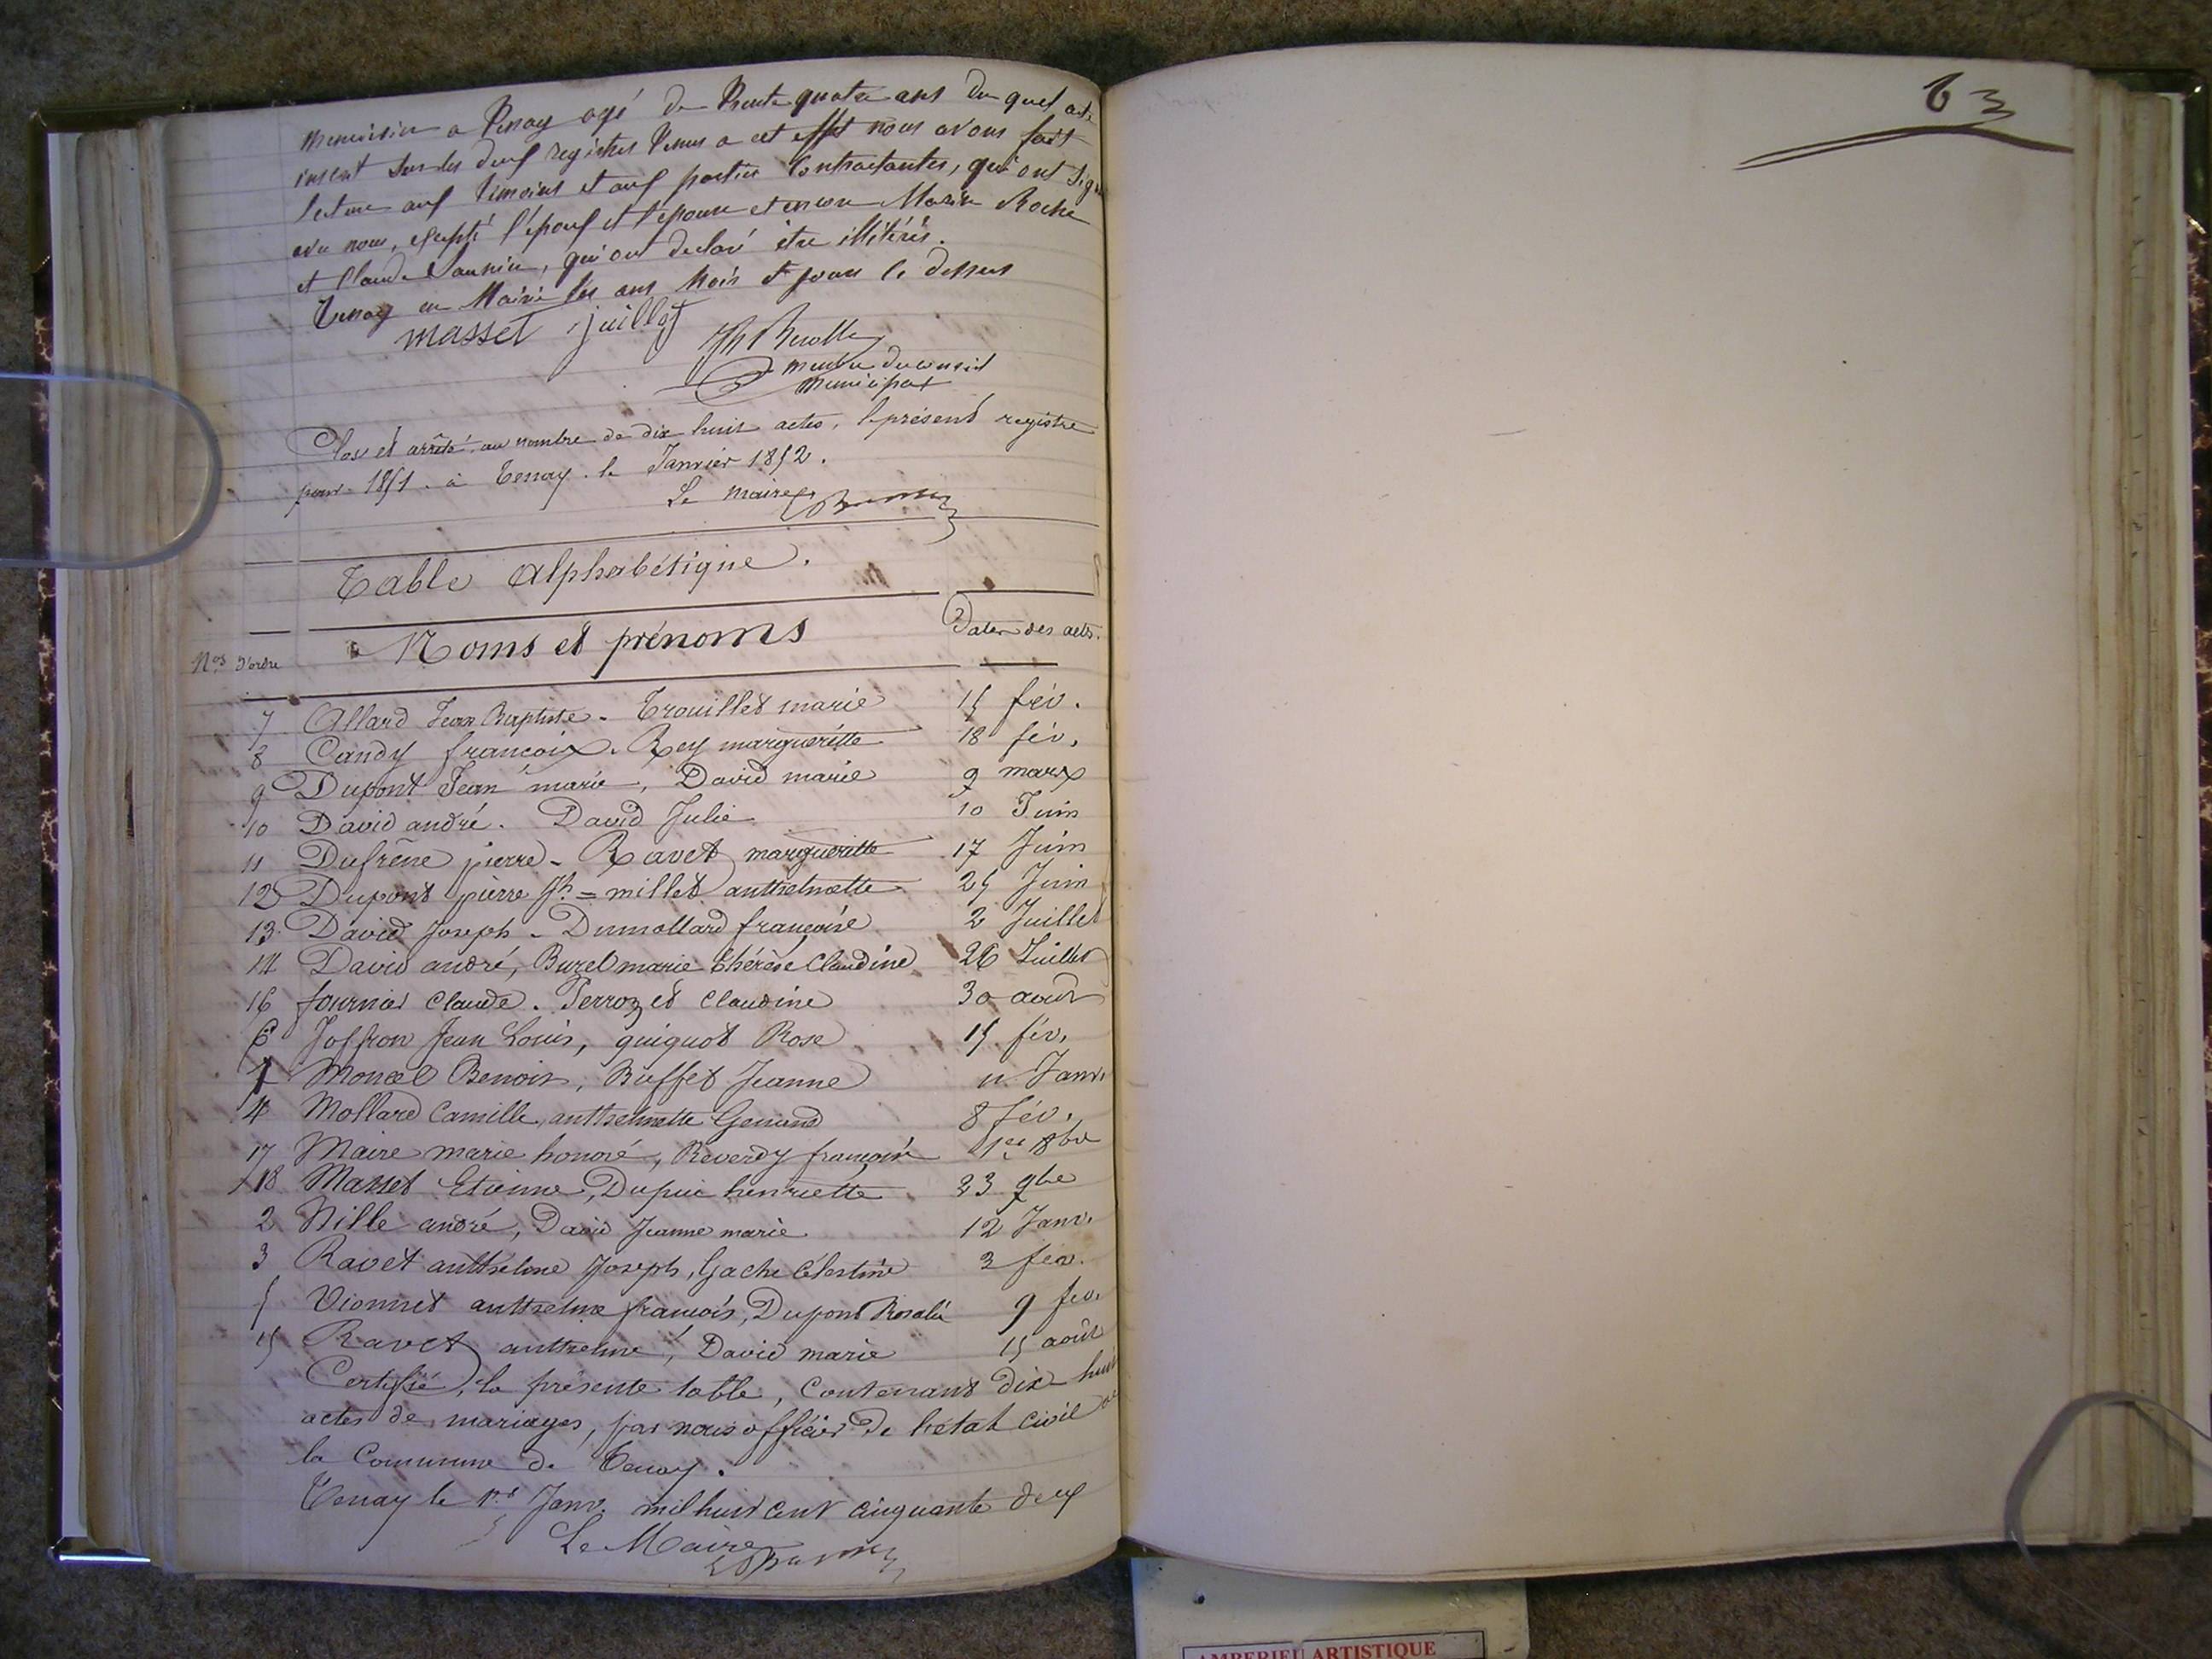 menuisier a Tenay agé de Trente quatre ans du quel acte
inscrit sur les deux registres tenus a cet effet nous avons fait
lecture aux temoins et aux parties contractantes, qui ont signé
avec nous, excepté l'époux et l'épouse et encore Roche
et Claude Saunier, qui ont déclaré être illitérés.
Tenay en Mairie les ans Mois et jour ci dessus
masset juillet
membre du conseil
municipal
Clos et arrêté au nombre de dix huit actes, le présent registre
pour 1851. à Tenay. le Janvier 1852.
Le maire
Table Alphabétique.
Nos d'ordre Noms et prénoms Dates des actes.
7 Allard Jean Baptiste - Trouillet marie 15 fév.
8 Candy francoix. Rey marguerítte 18 fév.
9 Dupont Jean marie, David marie 9 marx
10 David andré. David Julie 10 Juin
11 Dufrêne pierre - Ravet marguerítte 17 Juin
12 Dupont pierre Jh = millet anthelmette 25 Juin
13 David Joseph - Dumollard francoise 2 Juillet
14 David andré, Buzel marie thérèse Claudine 26 Juillet
16 fournier Claude. Perrozet Claudine 30 août
6 Joffron Jean Louis, guiguot Rose 15 fév.
1 Moncel Benoit, Buffet Jeanne 11 Janv.
4 Mollard Camille, anthelmette Genand 8 fév.
17 Maire marie honoré, Reverdy francoise 1er 8bre
18 Masset Etienne, Dupuis henriette 23 9bre
2 Nille andré, David Jeanne marie 12 Janv.
3 Ravet anthelme Joseph, Gache Célestine 3 fév.
5 Vionnet anthelme francois, Dupont Rosalie 9 fév.
15 Ravet anthelme, David marie 15 août
Certifié, la présente table, Contenant dix huit
actes de mariages, par nous officier de l'état Civil de
la Commune de Tenay.
Tenay le 1er Janv. mil huit cent cinquante deux
Le Maire
63
AMBERIEU ARTISTIQUE